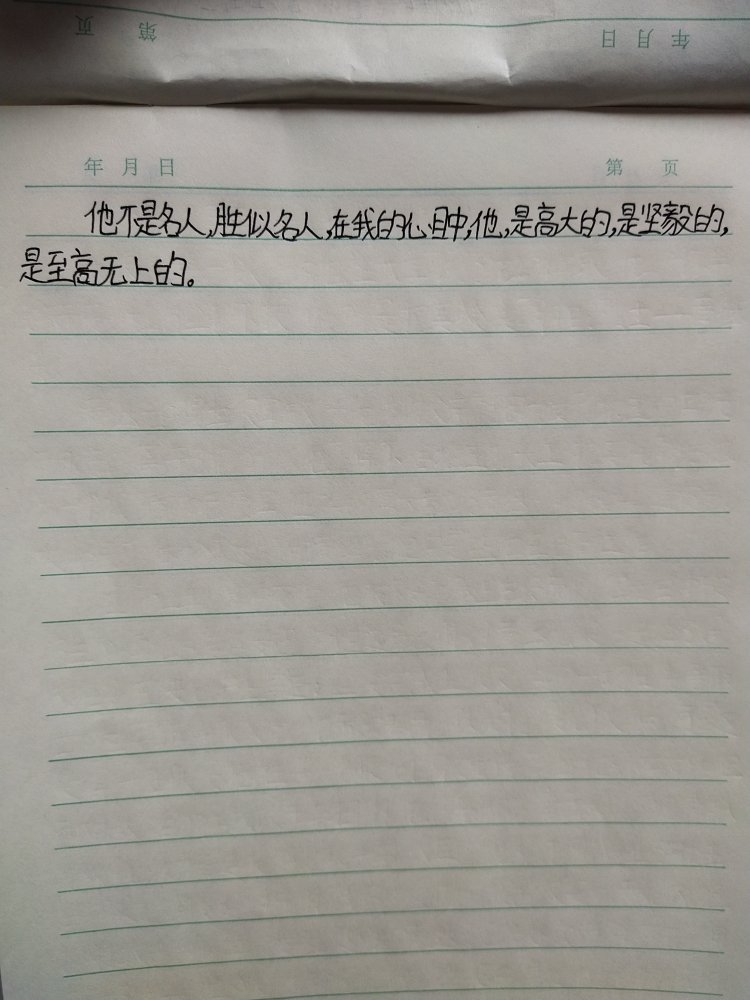 第 页 年 月 日
年 月 日 第 页
他不是名人,胜似名人,在我的心目中,他,是高大的,是坚毅的,
是至高无上的。